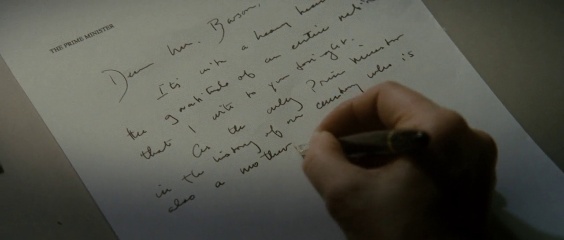 THE PRIME MINISTER
Dear Mr. Barson,
It's with a heavy heart
the gratitude of an entire nation
that I write to you tonight.
As the only Prime Minister
in the history of our country who is
also a mother